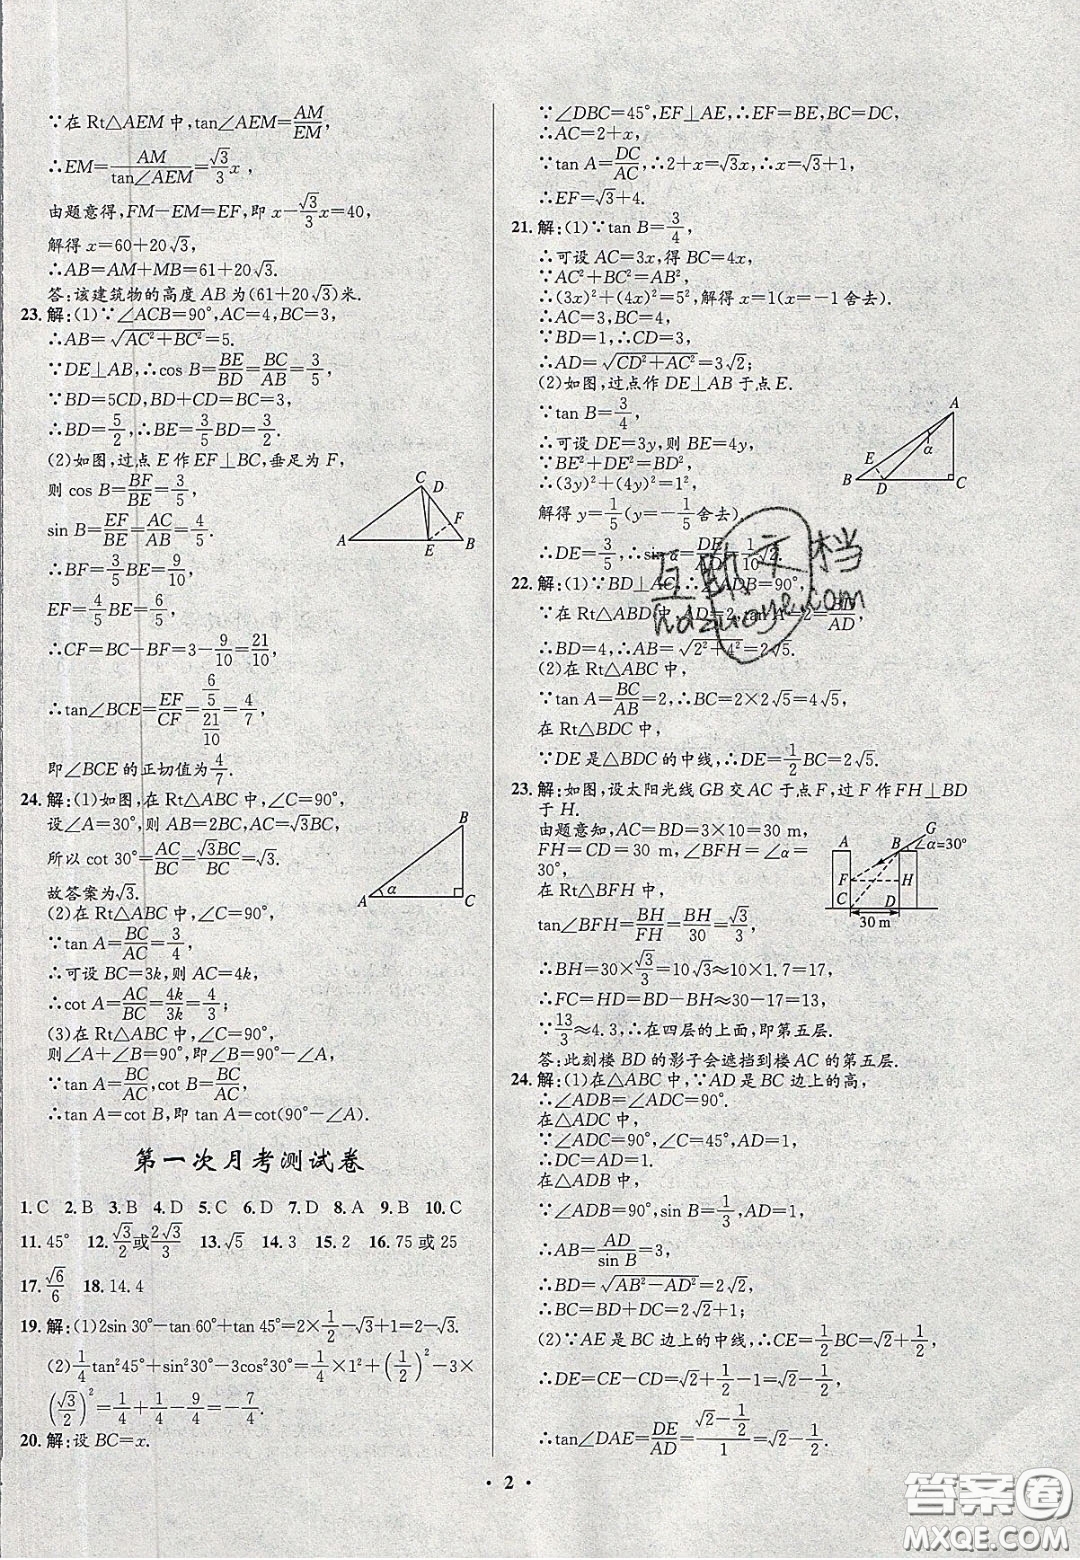 ∵在 Rt△AEM 中,tan∠AEM=AM/EM,
∴EM=AM/tan∠AEM=√3/3 x,
由题意得,FM-EM=EF,即 x-√3/3 x=40,
解得 x=60+20√3,
∴AB=AM+MB=61+20√3.
答:该建筑物的高度 AB 为(61+20√3)米.
23.解:(1)∵∠ACB=90°,AC=4,BC=3,
∴AB=√(AC²+BC²)=5.
∵DE⊥AB,∴cos B=BE/BD=BC/AB=3/5,
∵BD=5CD,BD+CD=BC=3,
∴BD=5/2,∴BE=3/5BD=3/2.
(2)如图,过点 E 作 EF⊥BC,垂足为 F,
则 cos B=BF/BE=3/5,
sin B=EF/BE=AC/AB=4/5.
∴BF=3/5BE=9/10,
EF=4/5BE=6/5,
∴CF=BC-BF=3-9/10=21/10,
∴tan∠BCE=EF/CF=(6/5)/(21/10)=4/7,
即∠BCE 的正切值为4/7.
C
D
F
A
E
B
24.解:(1)如图,在 Rt△ABC 中,∠C=90°,
设∠A=30°,则 AB=2BC,AC=√3BC,
所以 cot 30°=AC/BC=√3BC/BC=√3.
故答案为√3.
(2)在 Rt△ABC 中,∠C=90°,
∵tan A=BC/AC=3/4,
∴可设 BC=3k,则 AC=4k,
∴cot A=AC/BC=4k/3k=4/3;
(3)在 Rt△ABC 中,∠C=90°,
则∠A+∠B=90°,即∠B=90°-∠A,
∵tan A=BC/AC,cot B=BC/AC,
∴tan A=cot B,即 tan A=cot(90°-∠A).
B
α
A
C
第一次月考测试卷
1.C 2.B 3.B 4.D 5.C 6.D 7.D 8.A 9.B 10.C
11.45° 12.√3/2或2√3/3 13.√5 14.3 15.2 16.75 或 25
17.√6/6 18.14.4
19.解:(1)2sin 30°-tan 60°+tan 45°=2×1/2-√3+1=2-√3.
(2)1/4tan²45°+sin²30°-3cos²30°=1/4×1²+(1/2)²-3×
(√3/2)²=1/4+1/4-9/4=-7/4.
20.解:设 BC=x.
∵∠DBC=45°,EF⊥AE,∴EF=BE,BC=DC,
∴AC=2+x,
∵tan A=DC/AC,∴2+x=√3x,∴x=√3+1,
∴EF=√3+4.
21.解:(1)∵tan B=3/4,
∴可设 AC=3x,得 BC=4x,
∵AC²+BC²=AB²,
∴(3x)²+(4x)²=5²,解得 x=1(x=-1 舍去).
∴AC=3,BC=4,
∵BD=1,∴CD=3,
∴AD=√(CD²+AC²)=3√2;
(2)如图,过点作 DE⊥AB 于点 E.
∵tan B=3/4,
∴可设 DE=3y,则 BE=4y,
∵BE²+DE²=BD²,
∴(3y)²+(4y)²=1²,
解得 y=1/5(y=-1/5舍去),
∴DE=3/5,∴sin α=DE/AD=1/10√2.
A
α
E
B
D
C
22.解:(1)∵BD⊥AC,∴∠ADB=90°,
∵在 Rt△ABD 中,AD=2,tan A=2=BD/AD,
∴BD=4,∴AB=√(2²+4²)=2√5.
(2)在 Rt△ABC 中,
∵tan A=BC/AB=2,∴BC=2×2√5=4√5,
在 Rt△BDC 中,
∵DE 是△BDC 的中线,∴DE=1/2BC=2√5.
23.解:如图,设太阳光线 GB 交 AC 于点 F,过 F 作 FH⊥BD
于 H.
由题意知,AC=BD=3×10=30 m,
FH=CD=30 m,∠BFH=∠α=
30°,
在 Rt△BFH 中,
tan∠BFH=BH/FH=BH/30=√3/3,
∴BH=30×√3/3=10√3≈10×1.7=17,
∴FC=HD=BD-BH≈30-17=13,
∵13/3≈4.3,∴在四层的上面,即第五层.
答:此刻楼 BD 的影子会遮挡到楼 AC 的第五层.
G
A
B
∠α=30°
F
H
C
D
30 m
24.解:(1)在△ABC 中,∵AD 是 BC 边上的高,
∴∠ADB=∠ADC=90°.
在△ADC 中,
∵∠ADC=90°,∠C=45°,AD=1,
∴DC=AD=1.
在△ADB 中,
∵∠ADB=90°,sin B=1/3,AD=1,
∴AB=AD/sin B=3,
∴BD=√(AB²-AD²)=2√2,
∴BC=BD+DC=2√2+1,
(2)∵AE 是 BC 边上的中线,∴CE=1/2BC=√2+1/2,
∴DE=CE-CD=√2-1/2,
∴tan∠DAE=DE/AD=(√2-1/2)/1=√2-1/2.
• 2 •
答案圈
MXQE.COM